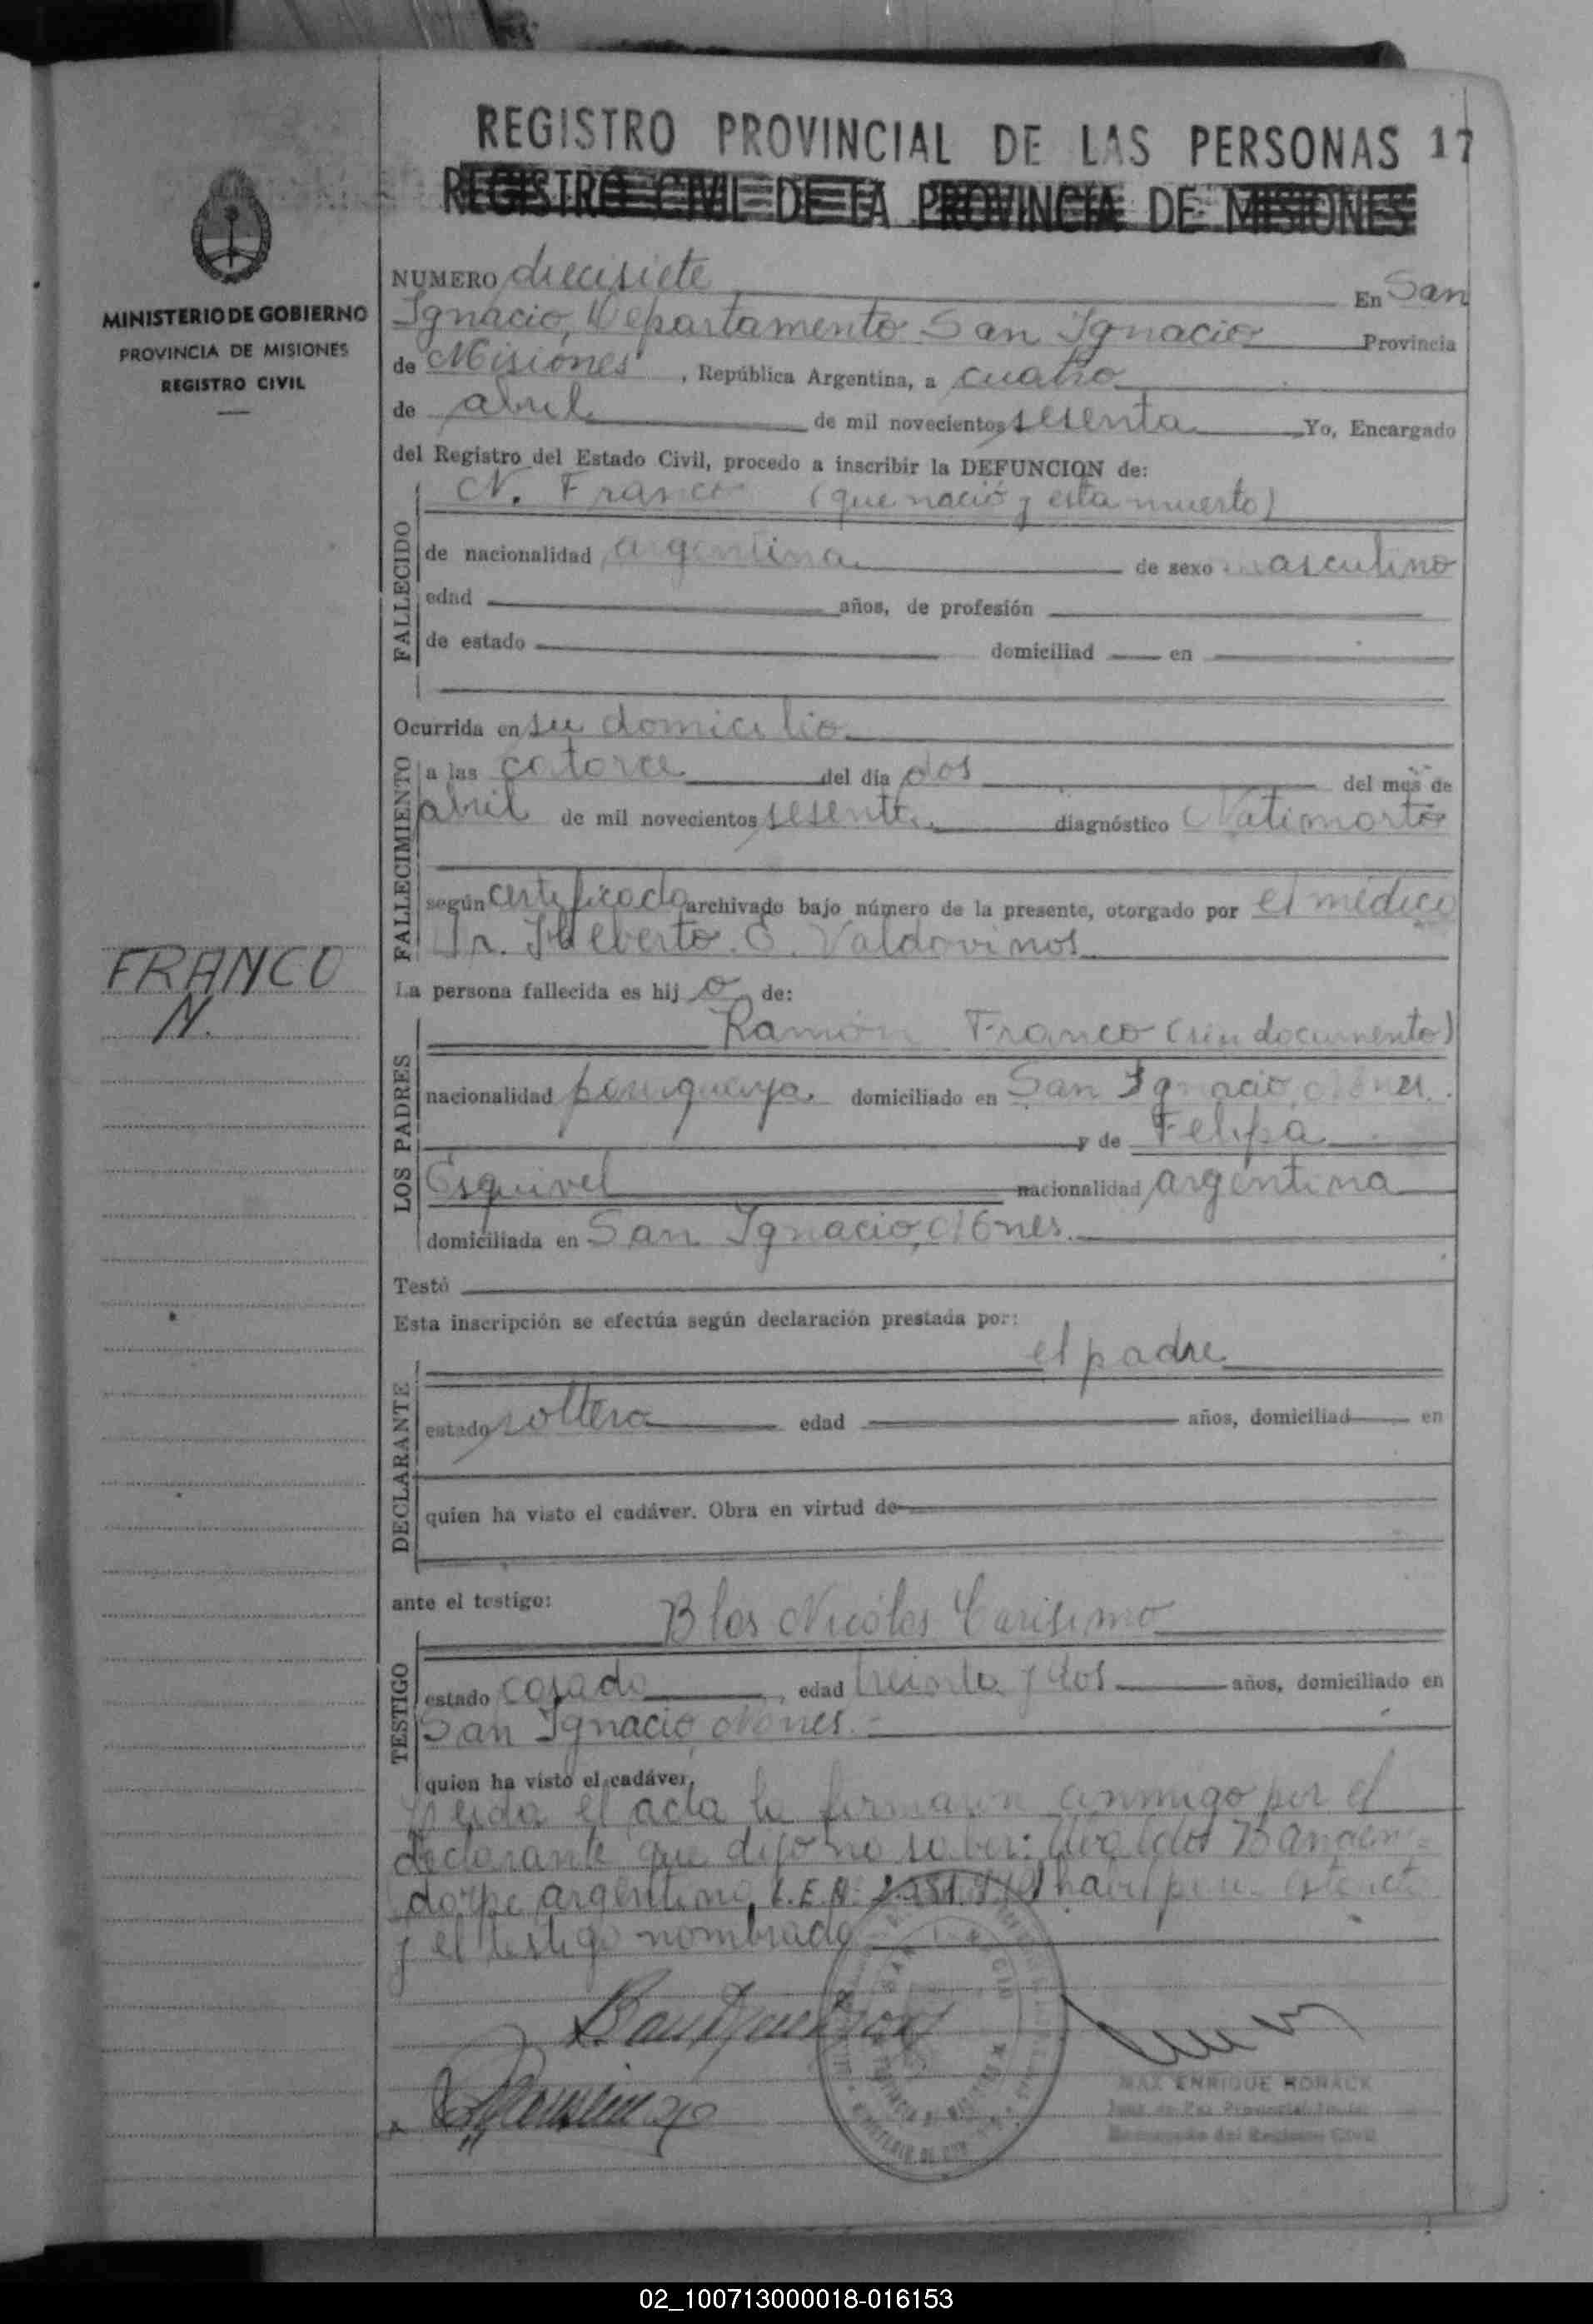 REGISTRO PROVINCIAL DE LAS PERSONAS 17
REGISTRO CIVIL DE LA PROVINCIA DE MISIONES
MINISTERIO DE GOBIERNO
PROVINCIA DE MISIONES
REGISTRO CIVIL
FRANCO
N.
NUMERO diecisiete En San
Ignacio, Departamento San Ignacio Provincia
de Misiones , República Argentina, a cuatro
de abril de mil novecientos sesenta Yo, Encargado
del Registro del Estado Civil, procedo a inscribir la DEFUNCION de:
FALLECIDO
N. Franco (que nació y esta muerto)
de nacionalidad argentina de sexo masculino
edad años, de profesión
de estado domiciliad en
Ocurrida en su domicilio
FALLECIMIENTO
a las catorce del día dos del mes de
abril de mil novecientos sesenta diagnóstico Natimorto
según certificado archivado bajo número de la presente, otorgado por el médico
Dr. Valdovinos
La persona fallecida es hij o de:
LOS PADRES
Ramón Franco (sin documento)
nacionalidad paraguaya domiciliado en San Ignacio, Mnes.
y de Felipa
Esquivel nacionalidad argentina
domiciliada en San Ignacio, Mnes.
Testó
Esta inscripción se efectúa según declaración prestada por:
DECLARANTE
el padre
estado soltero edad años, domiciliad en
quien ha visto el cadáver. Obra en virtud de
ante el testigo:
TESTIGO
Blas Nicolas Carisimo
estado casado , edad treinta y dos años, domiciliado en
San Ignacio, Mnes.-
quien ha visto el cadáver.
Leida el acta la firmaron conmigo por el
declarante que dijo no saber:
argentino, L.E.N.
y el testigo nombrado
MAX ENRIQUE
Juez de Paz
Encargado del Registro Civil
02_100713000018-016153